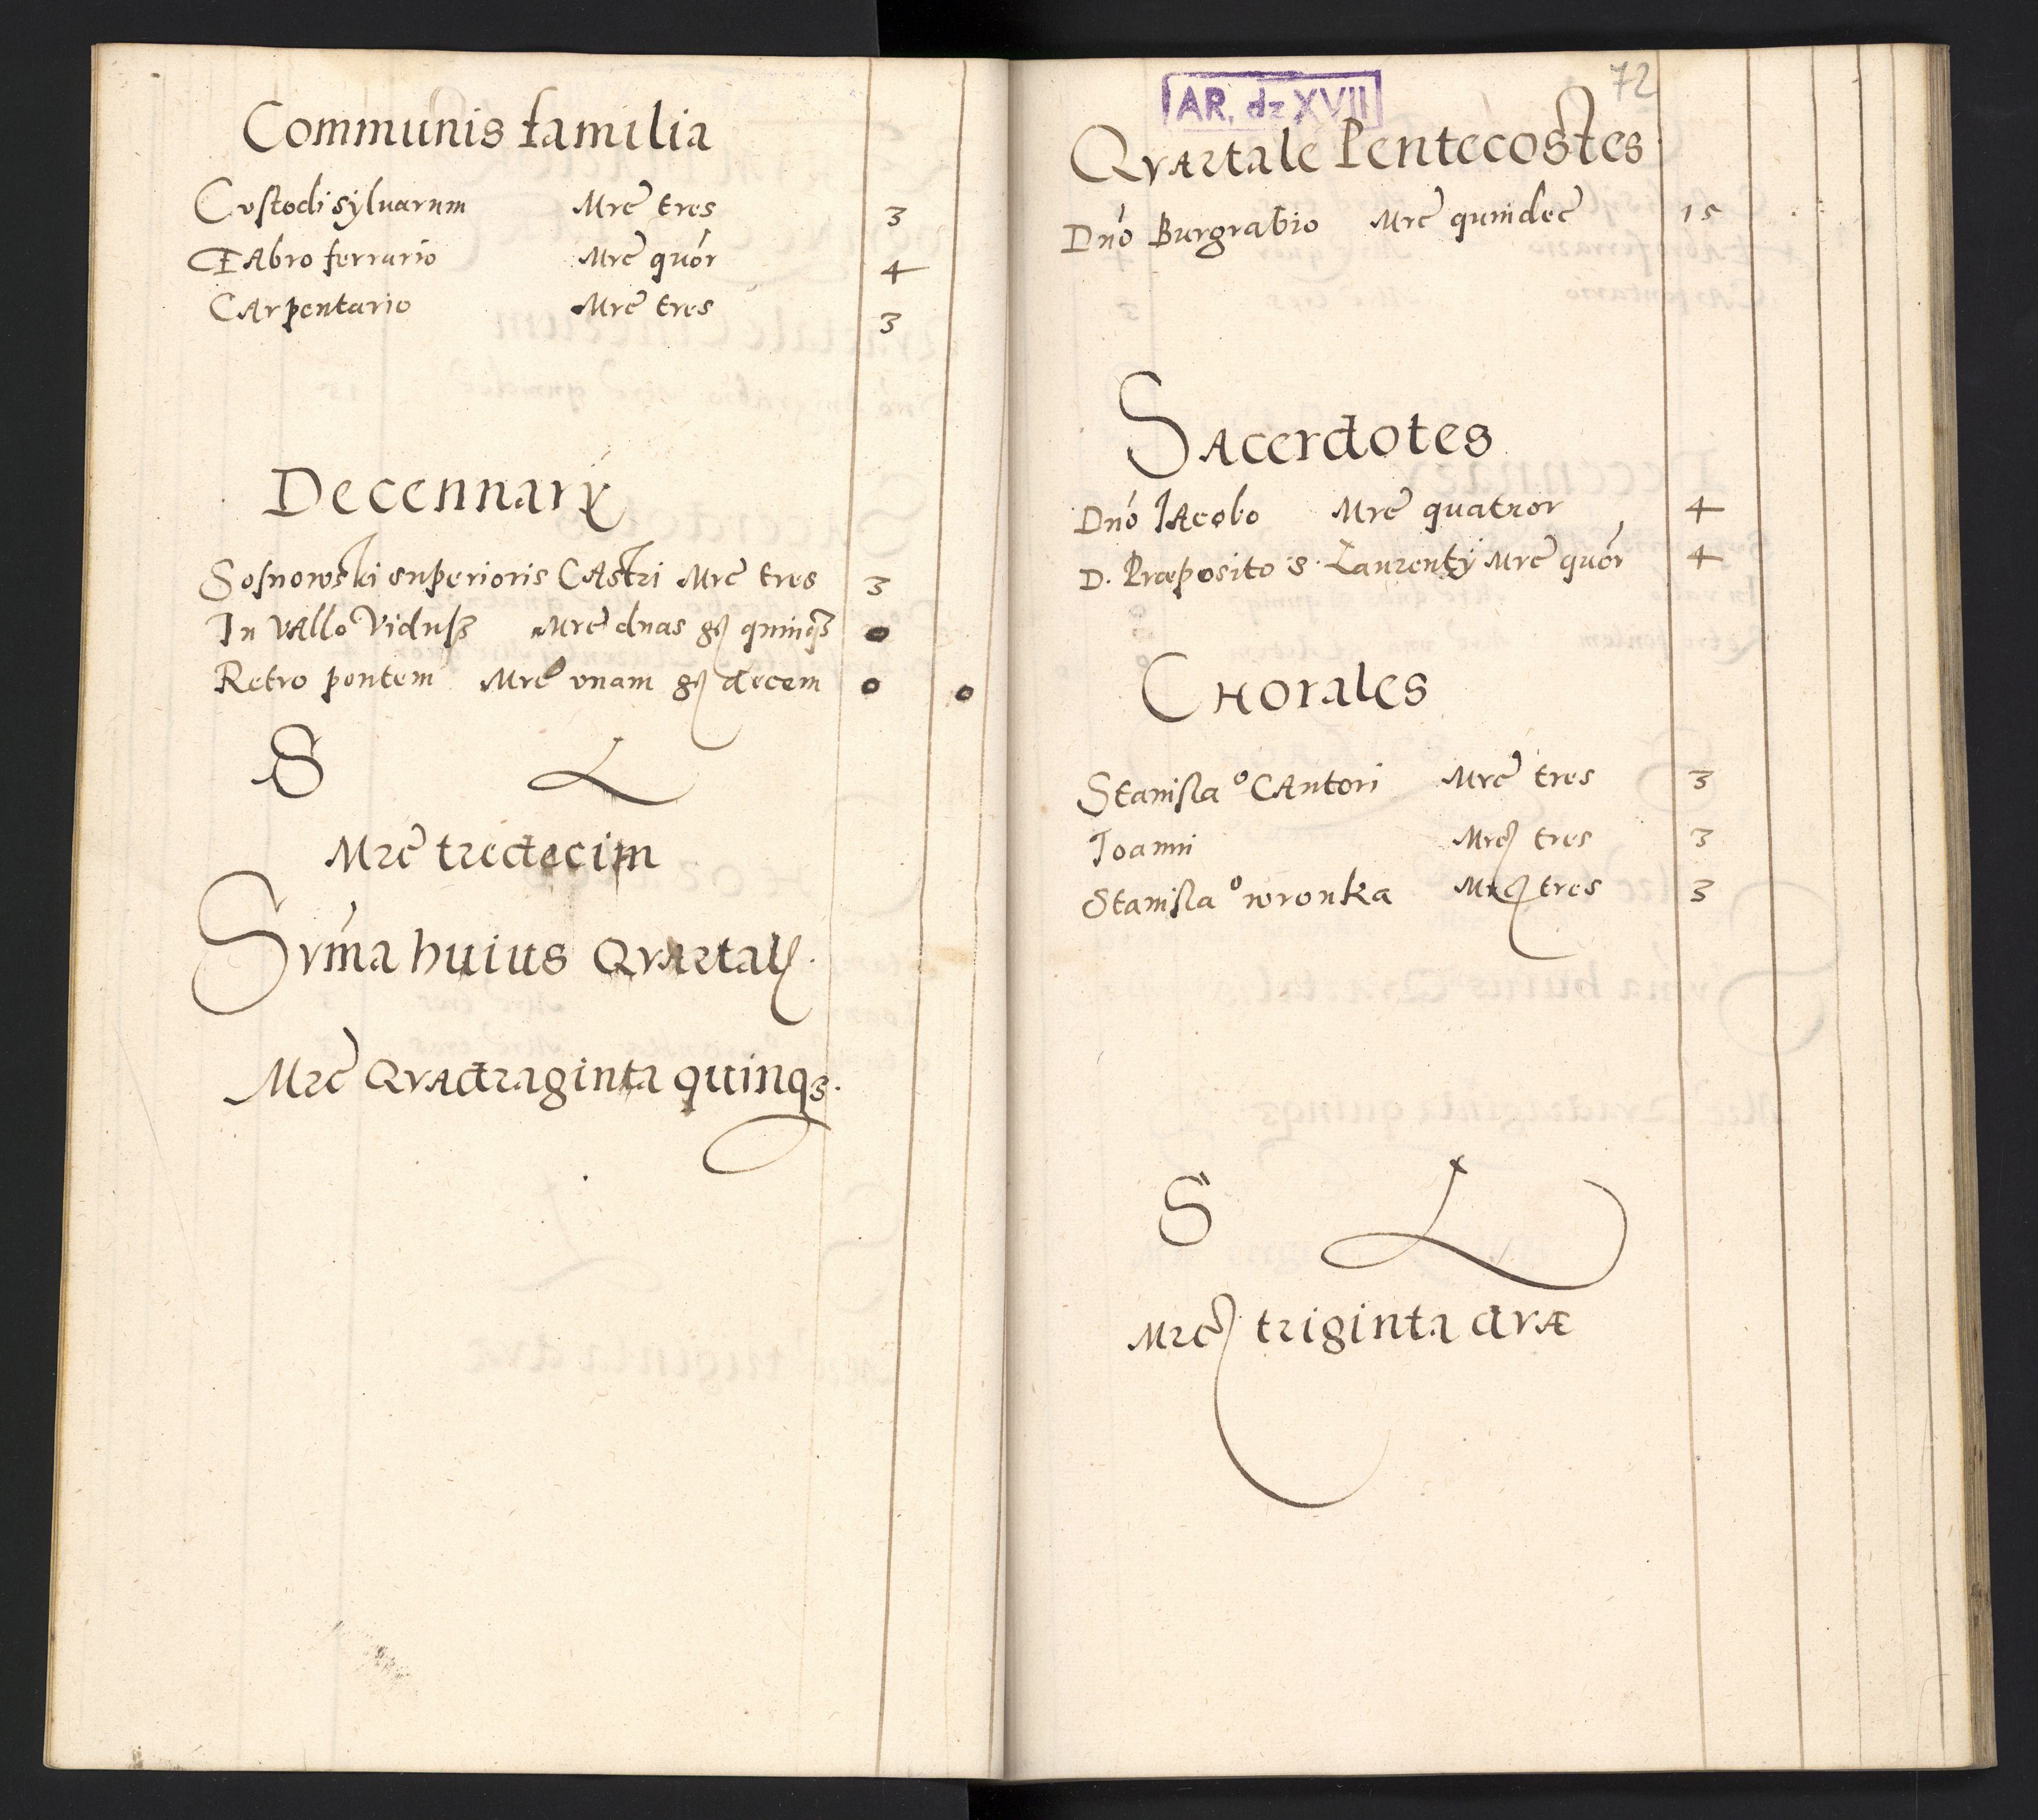 Communis familia
Custodi sylvarum Mrc̃ tres 3
Fabro ferrario Mrc̃ quor 4
Carpentario Mrc̃ tres 3
Decennarÿ
Sosnowski superioris Castri Mrc̃ tres 3
In vallo Mrc̃ duas gs quinqȝ 0
Retro pontem Mrc̃ unam gs decem 0 0
S L
Mrc̃ tredecim
Sum̃a huius Qvartalis
Mrc̃ Qvadraginta quinqȝ.
72
AR, dz XVII
Qvartale Pentecostes
Dnó Burgrabio Mrc̃ quindec̃ 15
Sacerdotes
Dnó Iacobo Mrc̃ quatuor 4
D. Præposito S. Laurentÿ Mrc̃ quor 4
Chorales
Stanislaº Cantori Mrc̃ tres 3
Ioanni Mrc̃ tres 3
Stanislaº wronka Mrc̃ tres 3
S L
Mrc̃ triginta dvæ